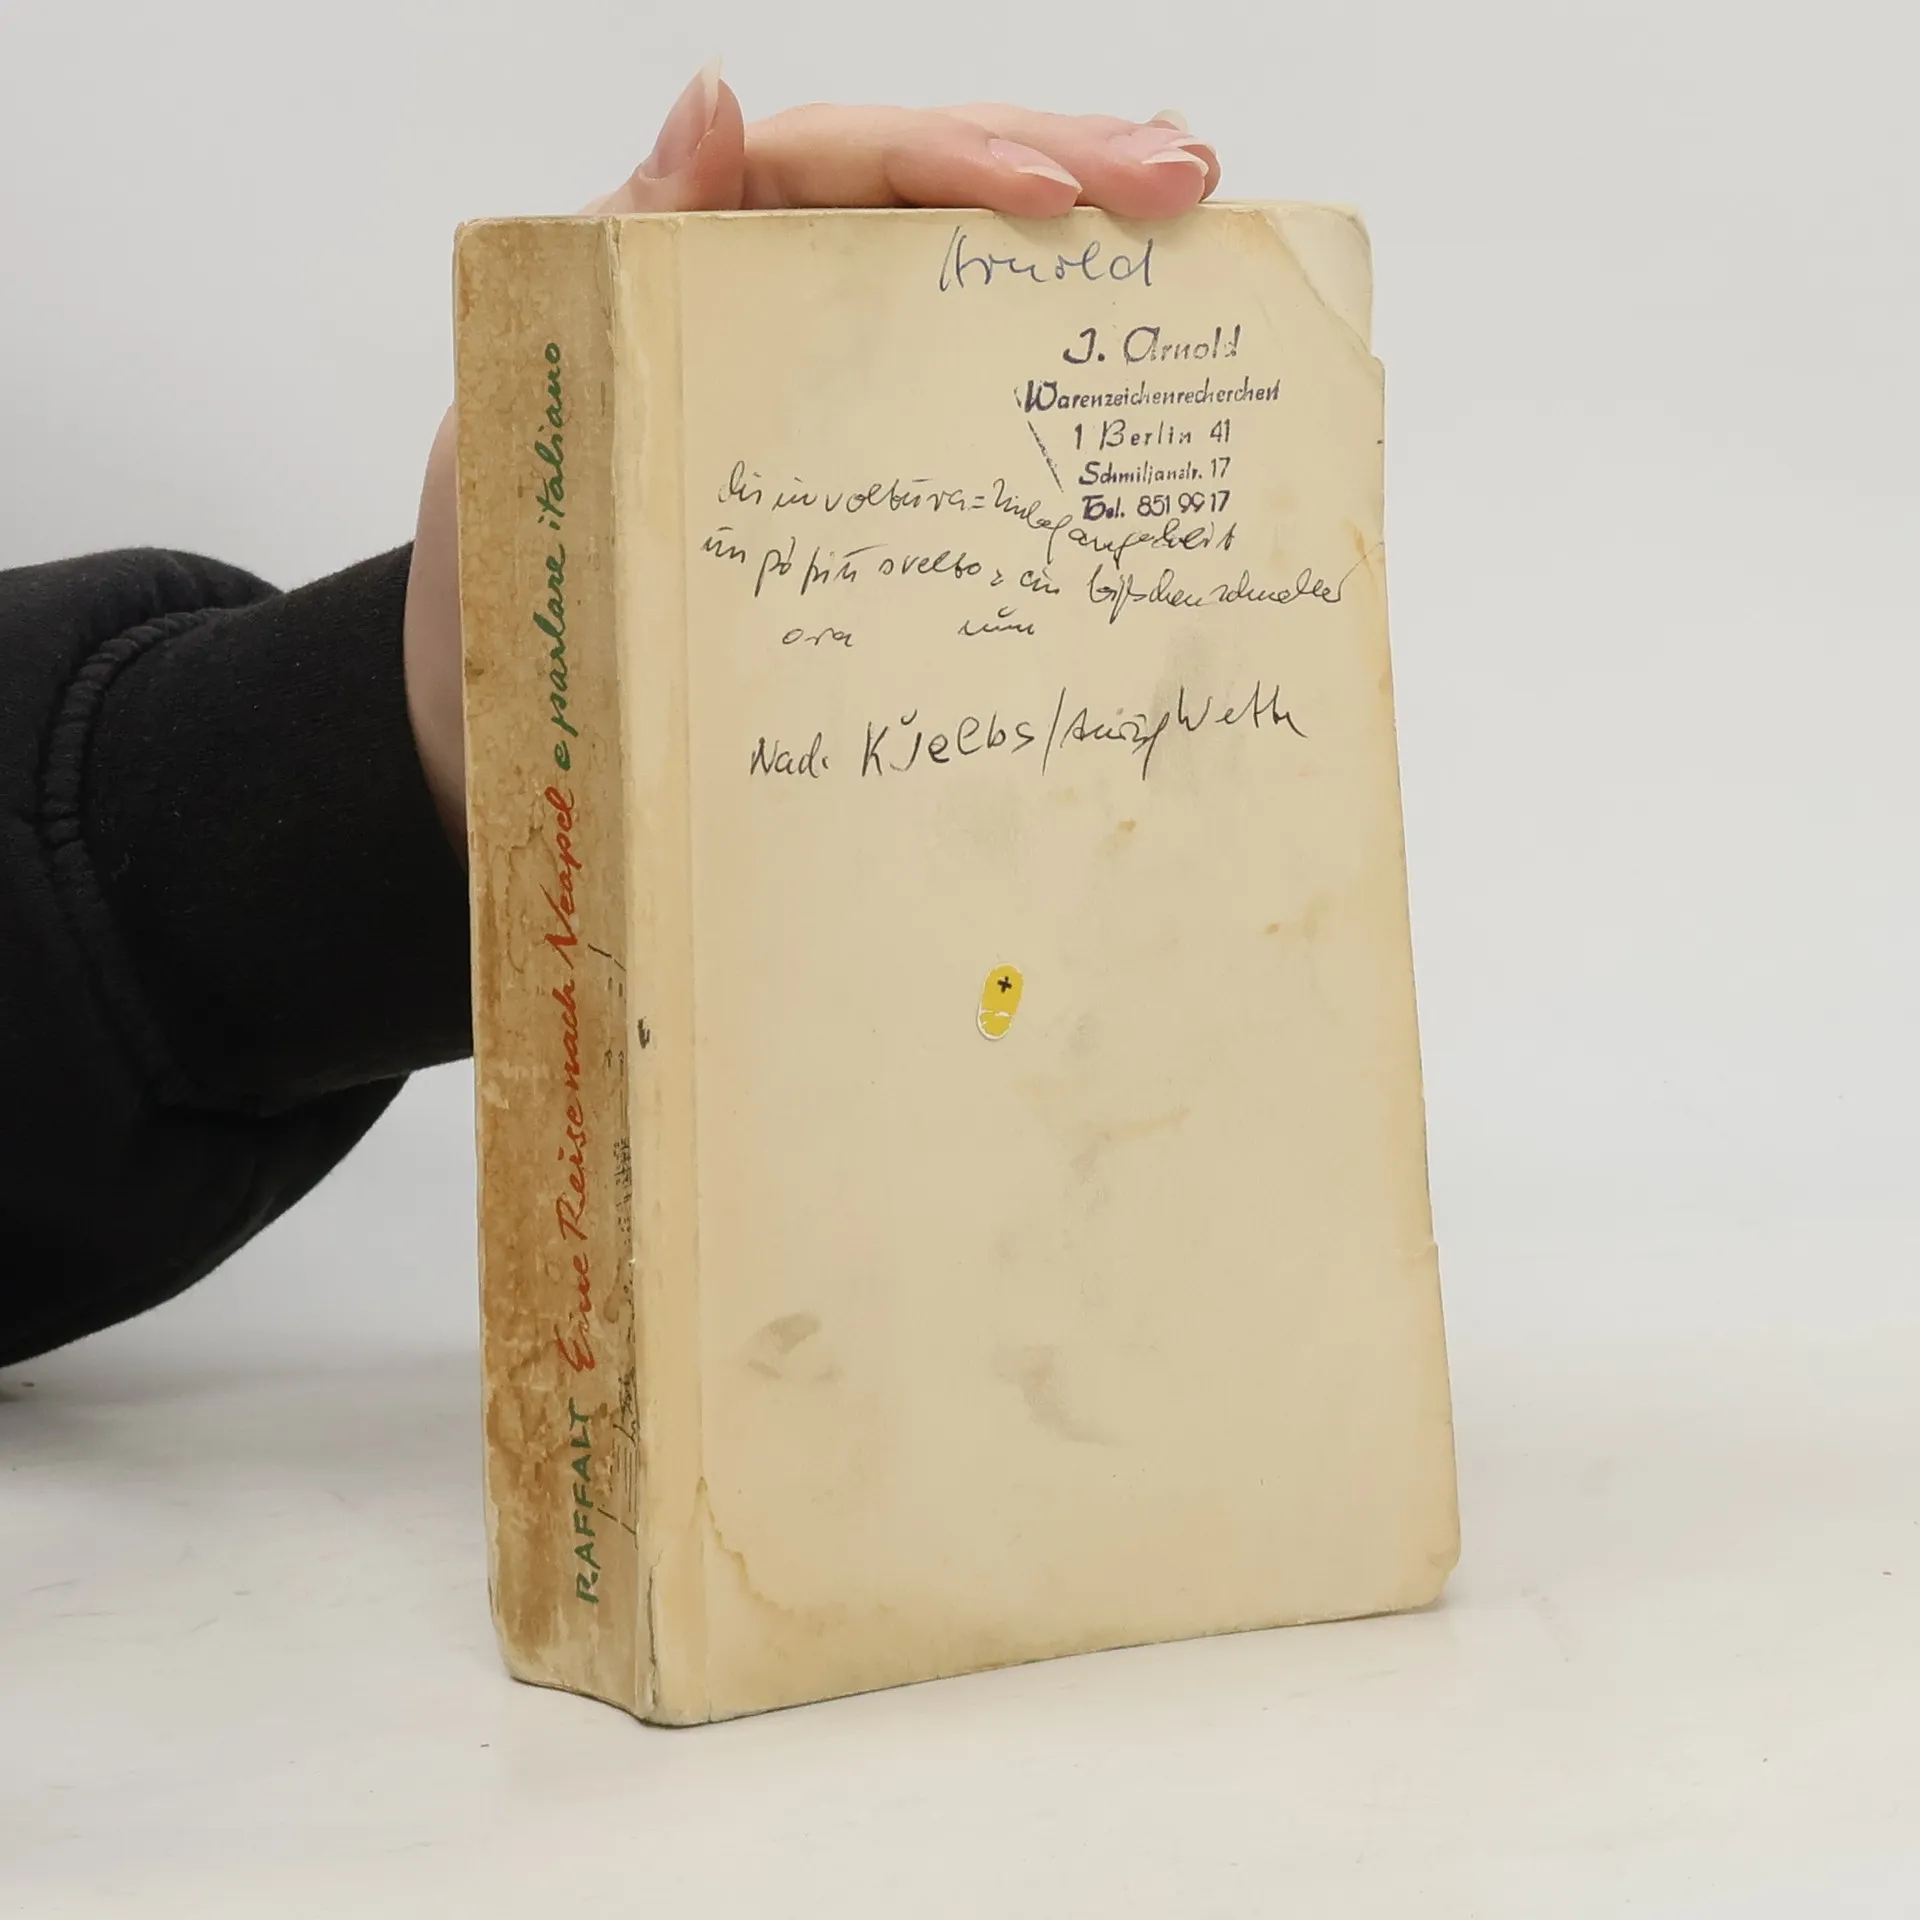 RAFFALT Eine Reise nach Neapel e parlare italiano
Arnold
J. Arnold
Warenzeichenrecherchen
1 Berlin 41
Schmiljanstr. 17
Tel. 851 99 17
disinvoltura = Unbefangenheit
un pò più svelto = ein bißchen schneller
ora nun
Nad.
+